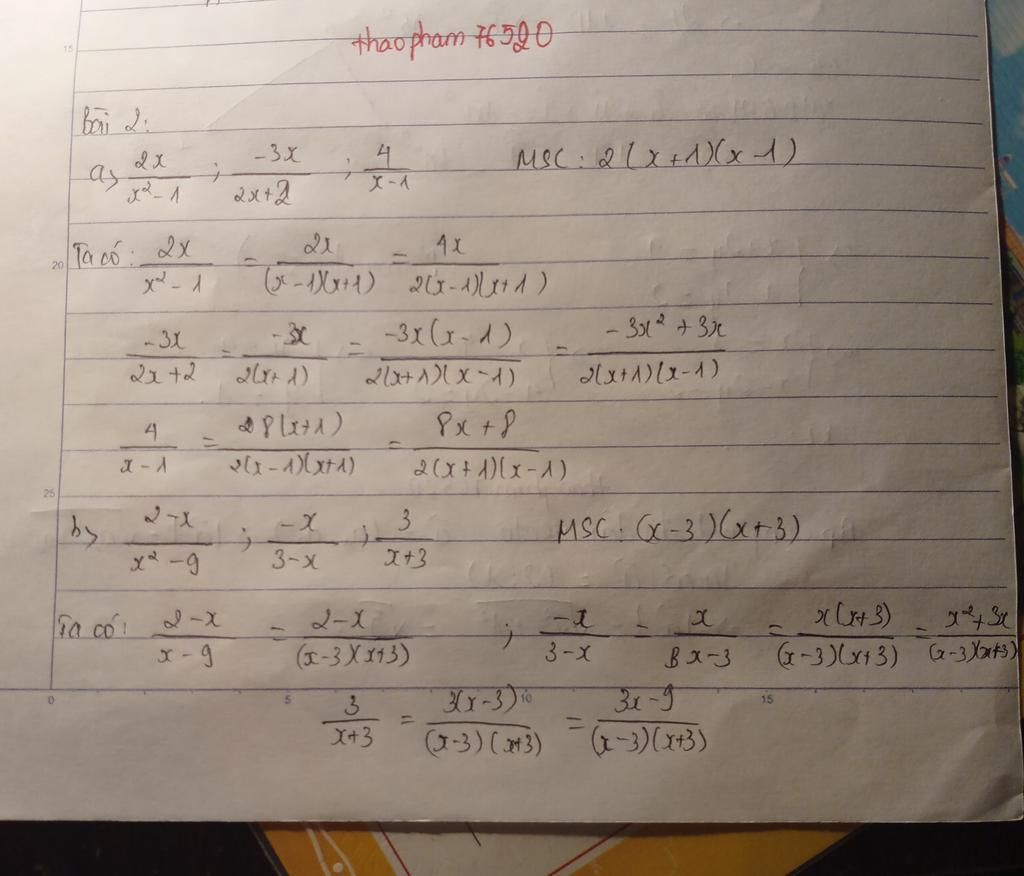 thaopham 76520
15
Bài 2:
a> 2x/(x²-1) ; -3x/(2x+2) ; 4/(x-1) MSC: 2(x+1)(x-1)
20 Ta có: 2x/(x²-1) = 2x/((x-1)(x+1)) = 4x/(2(x-1)(x+1))
-3x/(2x+2) = -3x/(2(x+1)) = -3x(x-1)/(2(x+1)(x-1)) = (-3x²+3x)/(2(x+1)(x-1))
4/(x-1) = 8(x+1)/(2(x-1)(x+1)) = (8x+8)/(2(x+1)(x-1))
25
b> (2-x)/(x²-9) ; -x/(3-x) ; 3/(x+3) MSC: (x-3)(x+3)
Ta có: (2-x)/(x-9) = (2-x)/((x-3)(x+3)) ; -x/(3-x) = x/(x-3) = x(x+3)/((x-3)(x+3)) = (x²+3x)/((x-3)(x+3))
0 5 10 15
3/(x+3) = 3(x-3)/((x-3)(x+3)) = (3x-9)/((x-3)(x+3))